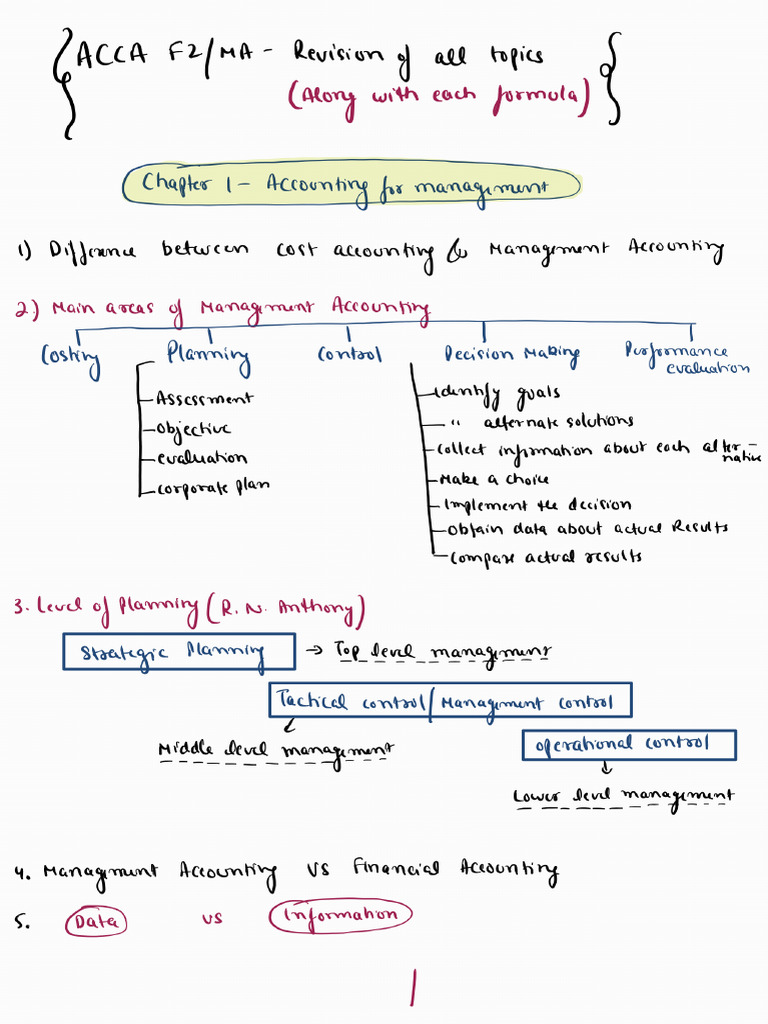 ACCA F2/MA - Revision of all topics
(Along with each formula)
Chapter 1 - Accounting for management
1) Difference between cost accounting & Management Accounting
2) Main areas of Management Accounting
Costing Planning Control Decision Making Performance evaluation
- Assessment
- Objective
- evaluation
- corporate plan
- identify goals
- " alternate solutions
- collect information about each alter-native
- Make a choice
- Implement the decision
- Obtain data about actual Results
- Compare actual results
3. Level of Planning (R. N. Anthony)
Strategic Planning → Top level management
Tactical control/Management control
Middle level management
Operational control
Lower level management
4. Management Accounting VS Financial Accounting
5. Data VS Information
1